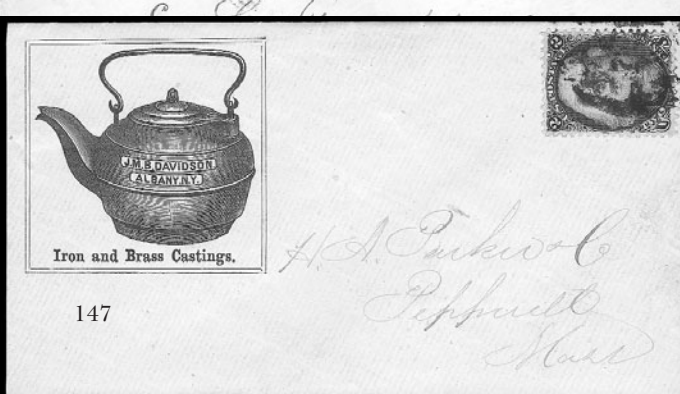 J.M.B. DAVIDSON
ALBANY.N.Y.
Iron and Brass Castings.
147
H. A. Parker & C
Pepperell
Mass